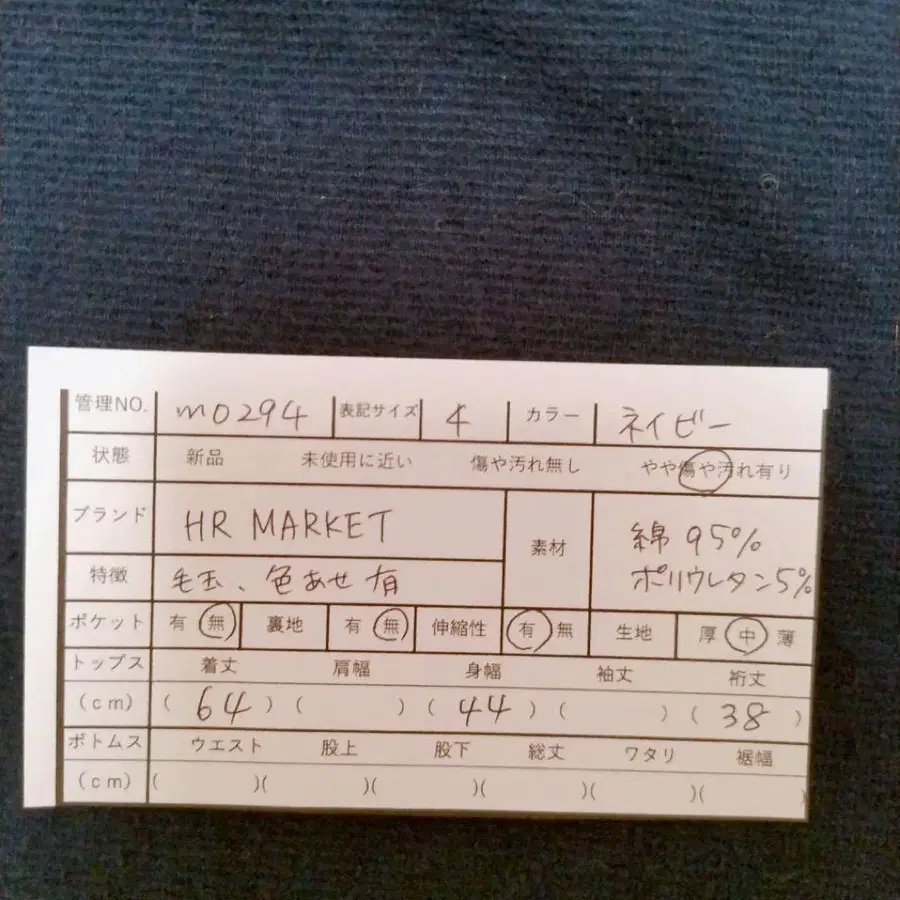 管理NO. m0294 表記サイズ 4 カラー ネイビー
状態 新品 未使用に近い 傷や汚れ無し やや傷や汚れ有り
ブランド HR MARKET 素材 綿 95%
ポリウレタン5%
特徴 毛玉、色あせ有
ポケット 有 無 裏地 有 無 伸縮性 有 無 生地 厚 中 薄
トップス 着丈 肩幅 身幅 袖丈 裄丈
(cm) ( 64 ) ( ) ( 44 ) ( ) ( 38 )
ボトムス ウエスト 股上 股下 総丈 ワタリ 裾幅
(cm) ( )( )( )( )( )( )